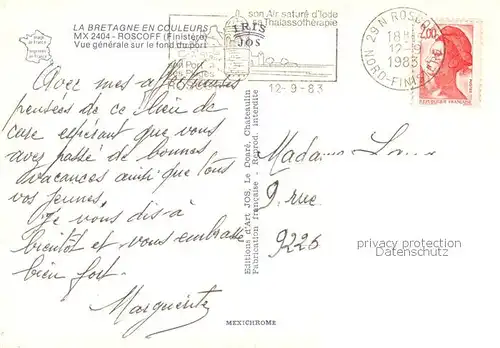 LA BRETAGNE EN COULEURS
MX 2404 - ROSCOFF (Finistère)
Vue générale sur le fond du port
IRIS
JOS
son Air saturé d'Iode
Thalassothérapie
12-9-83
29 N ROSCOFF
18H
12-9
1983
NORD-FINISTÈRE
2,00
REPUBLIQUE FRANÇAISE
Avec mes affectueuses
pensées de ce lieu de
cure espérant que vous
avez passé de bonnes
vacances ainsi que tous
vos jeunes.
Je vous dis à
bientôt et vous embrasse
bien fort.
Marguerite
Editions d'Art JOS, Le Doaré, Chateaulin
Fabrication française - Reprod. interdite
Madame
9, rue
9226
privacy protection
Datenschutz
MEXICHROME